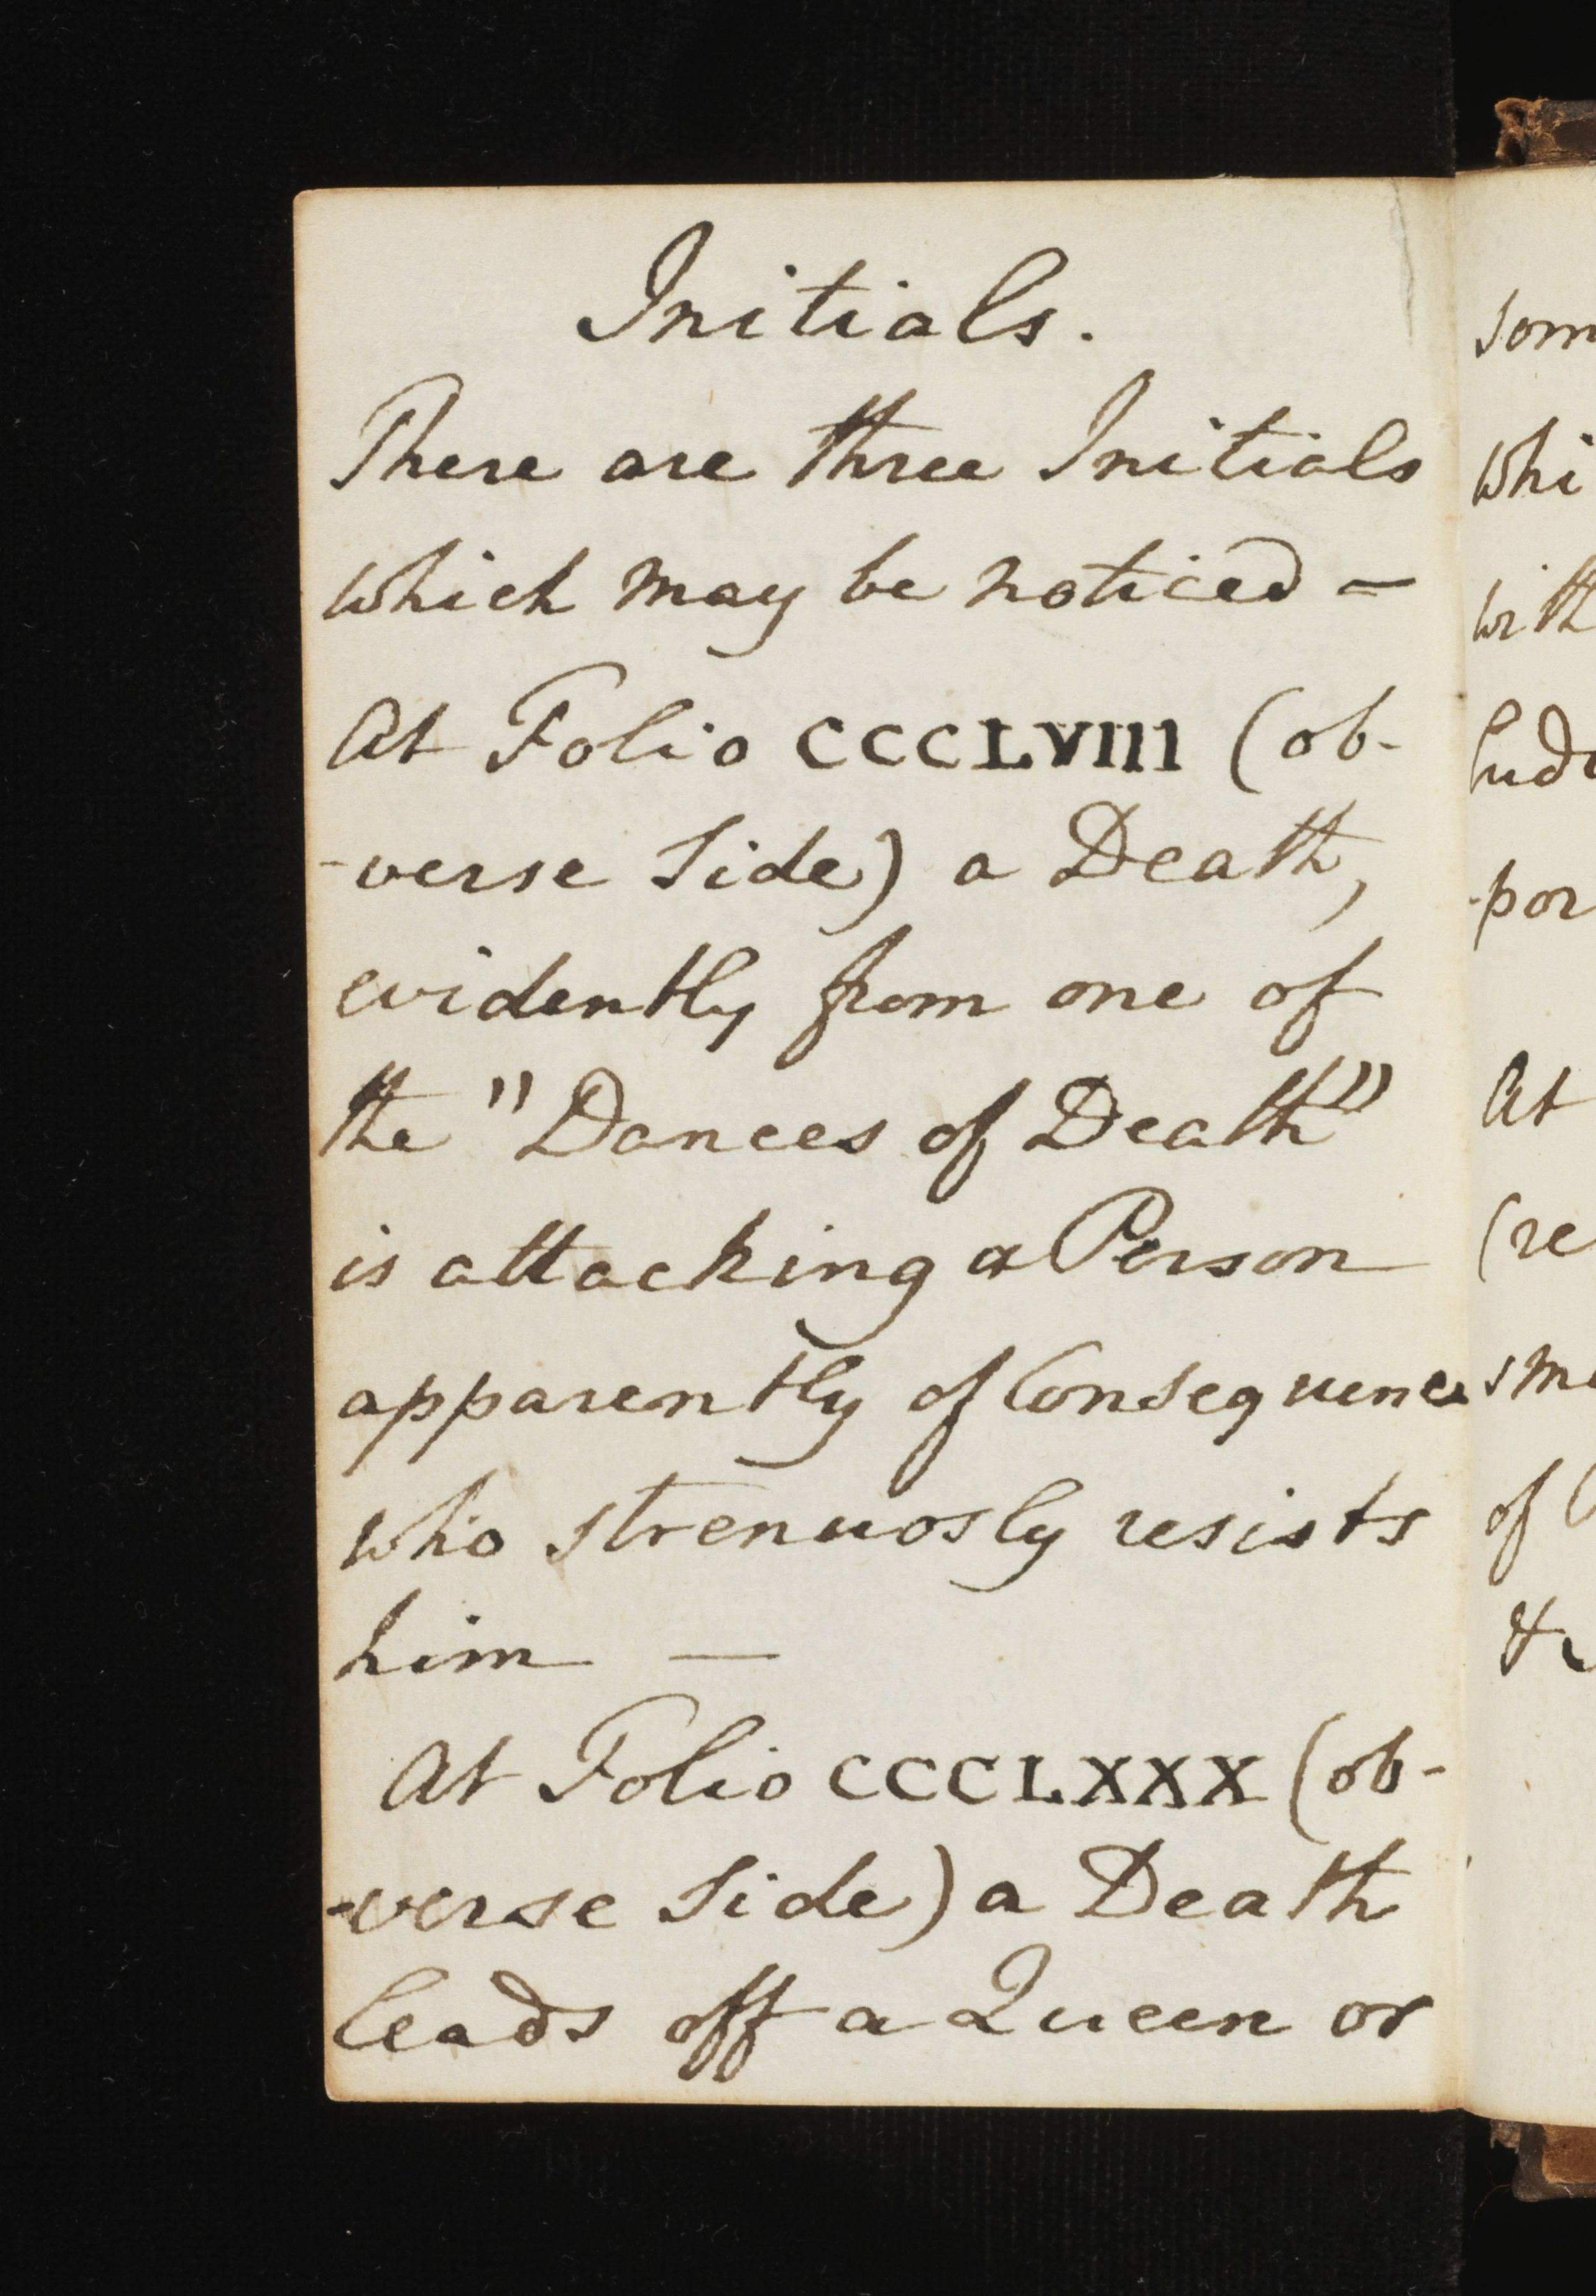 Initials.
There are three Initials
which may be noticed -
At Folio CCCLVIII (ob-
-verse Side) a Death,
evidently from one of
the "Dances of Death"
is attacking a Person
apparently of Consequence
who strenuosly resists
him —
At Folio CCCLXXX (ob-
-verse Side) a Death
leads off a Queen or
som
whi
with
lude
-por
At
(re
sm
of